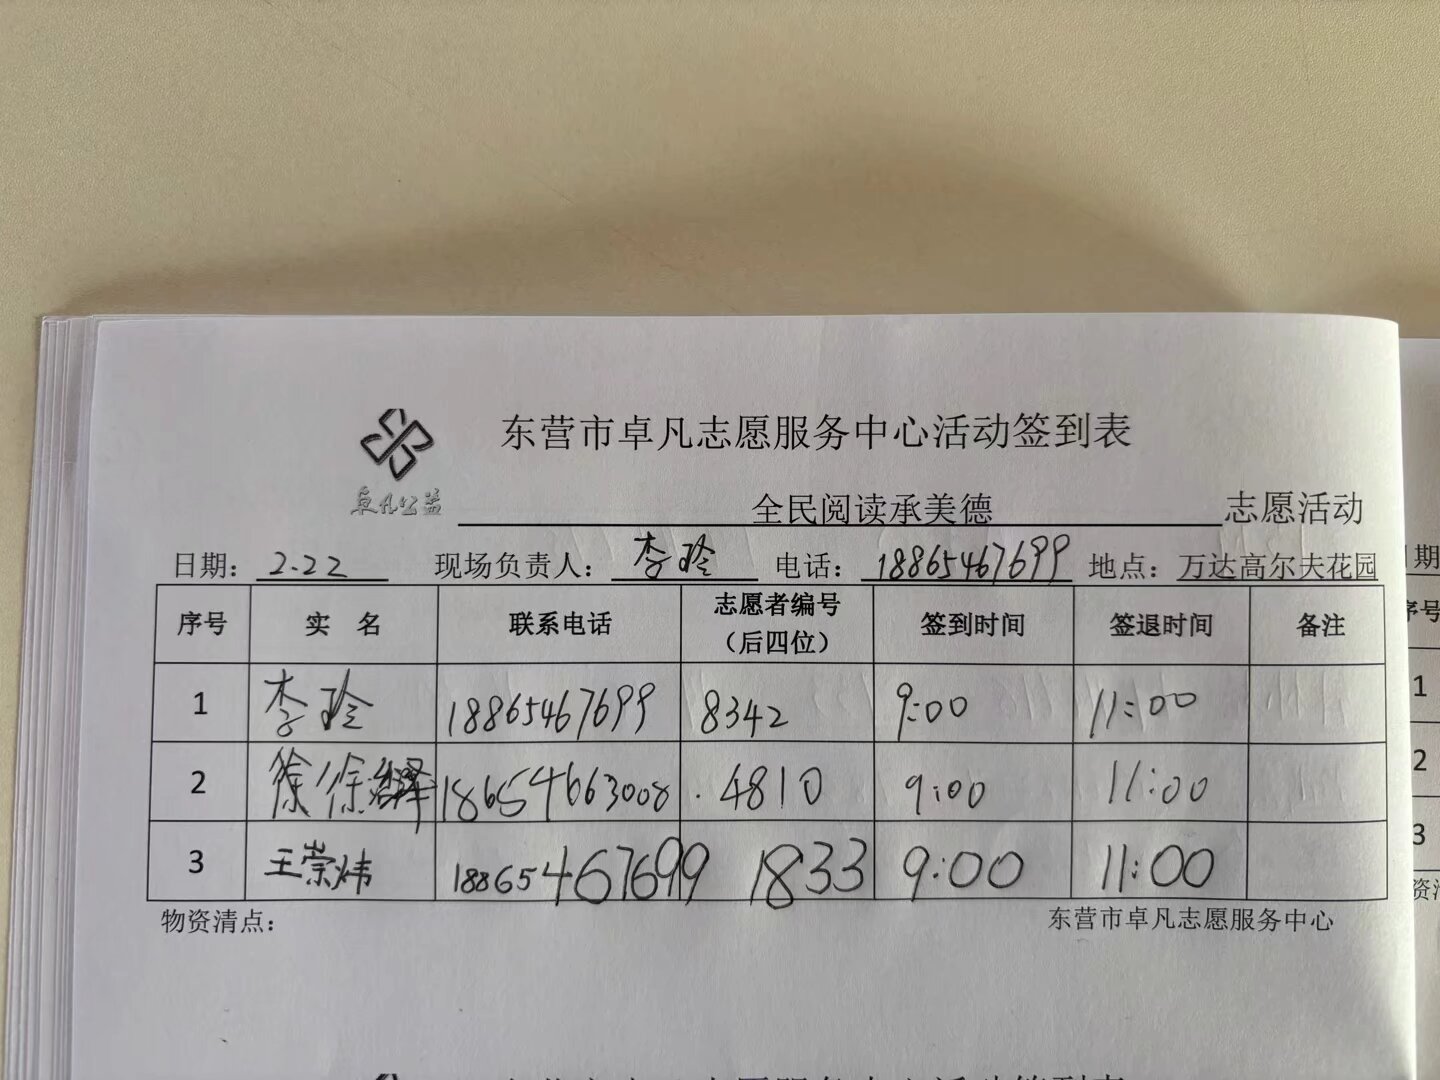 东营市卓凡志愿服务中心活动签到表
卓凡公益
全民阅读承美德 志愿活动
日期：2.22 现场负责人：李玲 电话：18865467699 地点：万达高尔夫花园
序号 实 名 联系电话 志愿者编号（后四位） 签到时间 签退时间 备注
1 李玲 18865467699 8342 9:00 11:00
2 徐 18654663008 4810 9:00 11:00
3 王崇炜 18865467699 1833 9:00 11:00
物资清点： 东营市卓凡志愿服务中心
日期
序号
1
2
3